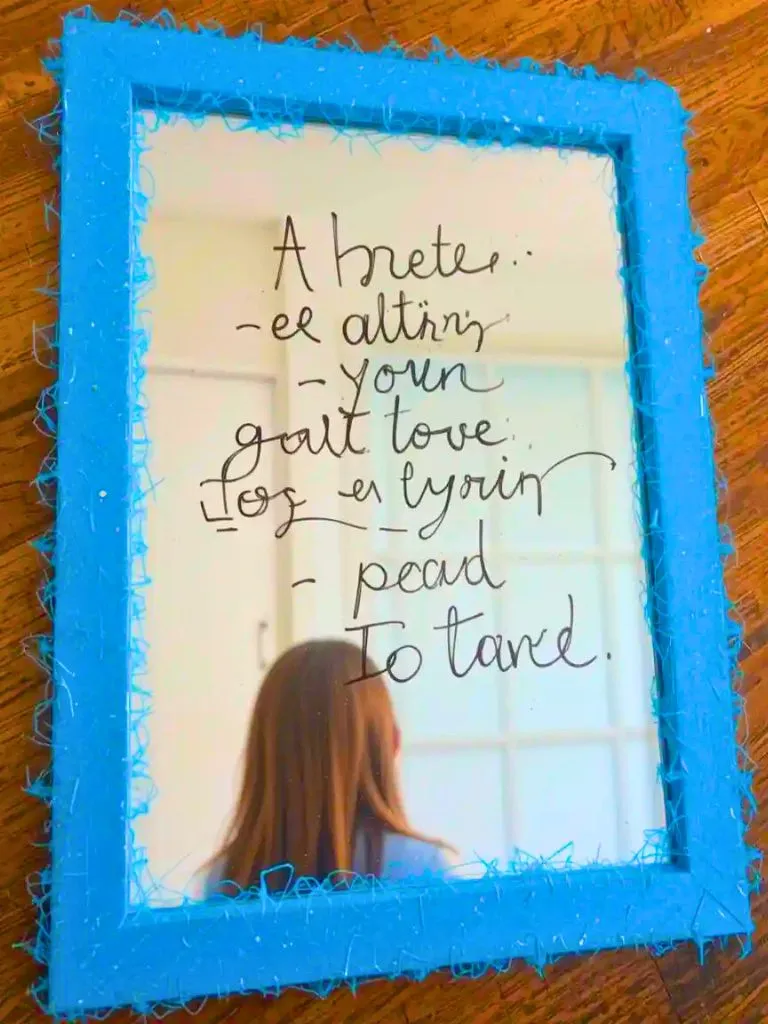 A brete..
-ee altiny
- youn
gait tove
Jog er lyrin
- pead
Io tared.